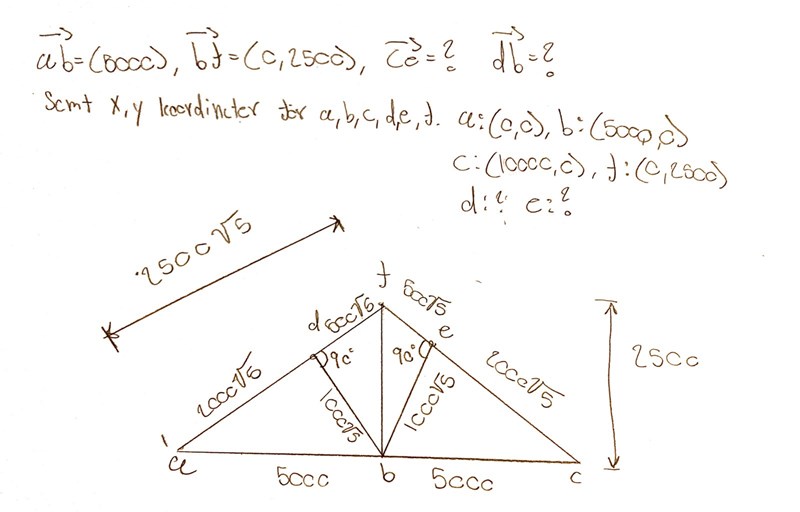 ab=(5000), bf=(0,2500), ce=? db=?
Samt X,y koordinater for a,b,c,d,e,f. a:(0,0), b:(5000,0)
c:(10000,0), f:(0,2500)
d:? e:?
2500√5
f
d 500√5 500√5 e
90° 90°
2500
2000√5 1000√5 1000√5 2000√5
a 5000 b 5000 c